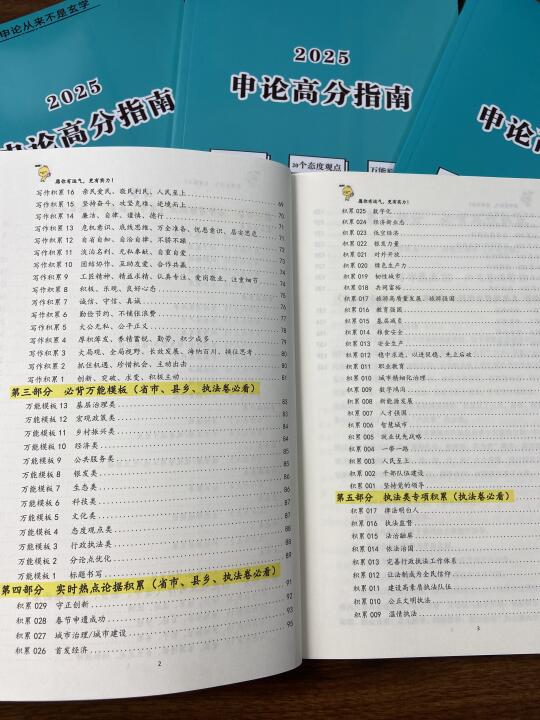 申论从来不是玄学
2025
申论高分指南
2025
申论高分指南
20个态度观点
申论高分
愿你有运气，更有实力！
写作积累 16 亲民爱民、敬民利民、人民至上
写作积累 15 坚持奋斗、攻坚克难、逆境而上 69
写作积累 14 廉洁、自律、谨慎、德行 70
写作积累 13 危机意识、底线思维、万全准备、忧患意识、居安思危 71
写作积累 12 自省自知、自治自律、不骄不躁
写作积累 11 淡泊名利、无私奉献、自重自爱
写作积累 10 团结协作、互助友爱、合作共赢
写作积累 9 工匠精神、精益求精、认真专注、爱岗敬业、注重细节
写作积累 8 积极、乐观、良好心态
写作积累 7 诚信、守信、真诚
写作积累 6 勤俭节约、不铺张浪费
写作积累 5 大公无私、公平正义
写作积累 4 厚积薄发、养精蓄锐、勤劳、积少成多
写作积累 3 大局观、全局视野、长效发展、海纳百川、换位思考 80
写作积累 2 抓住机遇、珍惜机会、主动出击
写作积累 1 创新、突破、求变、积极主动 81
第三部分 必背万能模板（省市、县乡、执法卷必看）
万能模板 13 基层治理类 83
万能模板 12 宏观政策类 83
万能模板 11 乡村振兴类 84
万能模板 10 经济类
万能模板 9 公共服务类 85
万能模板 8 银发类
万能模板 7 生态类
万能模板 6 科技类
万能模板 5 文化类
万能模板 4 态度观点类
万能模板 3 行政执法类
万能模板 2 分论点优化
万能模板 1 标题书写 89
第四部分 实时热点论据积累（省市、县乡、执法卷必看）
积累 029 守正创新 91
积累 028 春节申遗成功 92
积累 027 城市治理/城市建设
积累 026 首发经济 95
2
愿你有运气，更有实力！
积累 025 数字化
积累 024 经济新业态
积累 023 低空经济
积累 022 银发力量
积累 021 对外开放
积累 020 绿色生产力
积累 019 韧性城市
积累 018 共同富裕
积累 017 旅游高质量发展、旅游强国
积累 016 教育强国
积累 015 基层减负
积累 014 粮食安全
积累 013 安全生产
积累 012 稳中求进、以进促稳、先立后破
积累 011 职业教育
积累 010 城市精细化治理
积累 009 数字鸿沟
积累 008 新能源发展
积累 007 人才强国
积累 006 智慧城市
积累 005 就业优先战略
积累 004 一带一路
积累 003 人民至上
积累 002 干部队伍建设
积累 001 坚持党的领导
第五部分 执法类专项积累（执法卷必看）
积累 017 律法明白人
积累 016 执法监督
积累 015 法治融屏
积累 014 依法治国
积累 013 完善行政执法工作体系
积累 012 让法制成为全民信仰
积累 011 建设高素质执法队伍
积累 010 公正文明执法
积累 009 温情执法
3